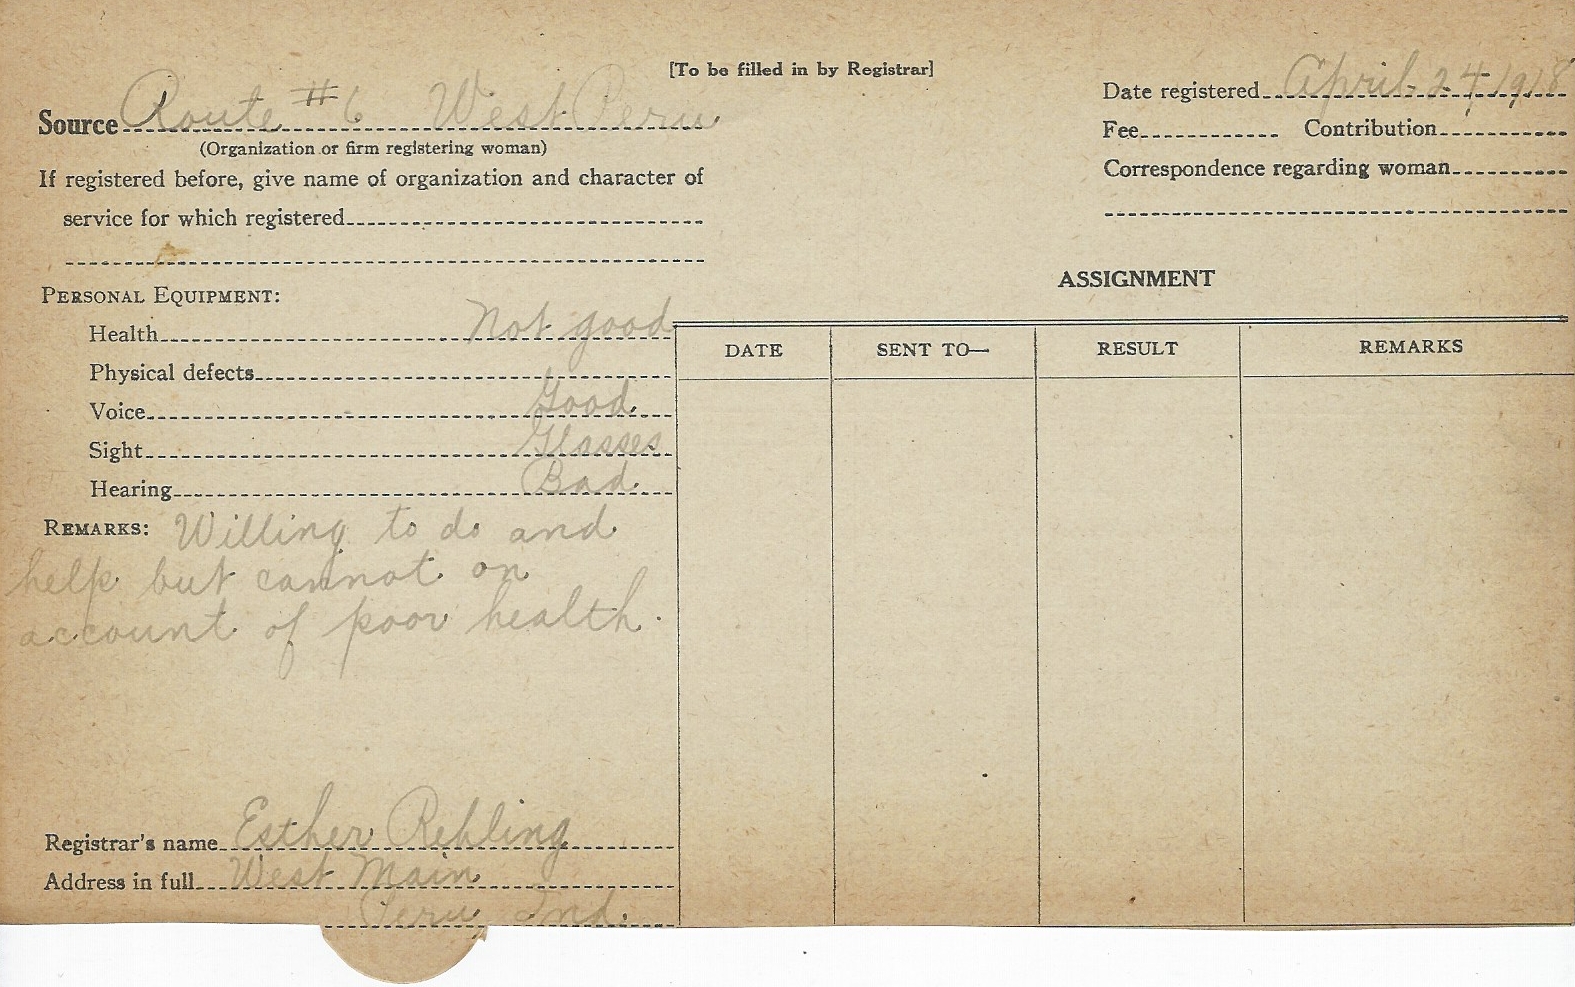 [To be filled in by Registrar]
Source Route #6 West Peru
(Organization or firm registering woman)
If registered before, give name of organization and character of
service for which registered
Date registered April 24, 1918
Fee Contribution
Correspondence regarding woman
PERSONAL EQUIPMENT:
Health Not good
Physical defects
Voice Good
Sight Glasses
Hearing Bad
REMARKS: Willing to do and
help but cannot on
account of poor health.
Registrar's name Esther Rehling
Address in full West Main
Peru Ind.
ASSIGNMENT
DATE SENT TO— RESULT REMARKS